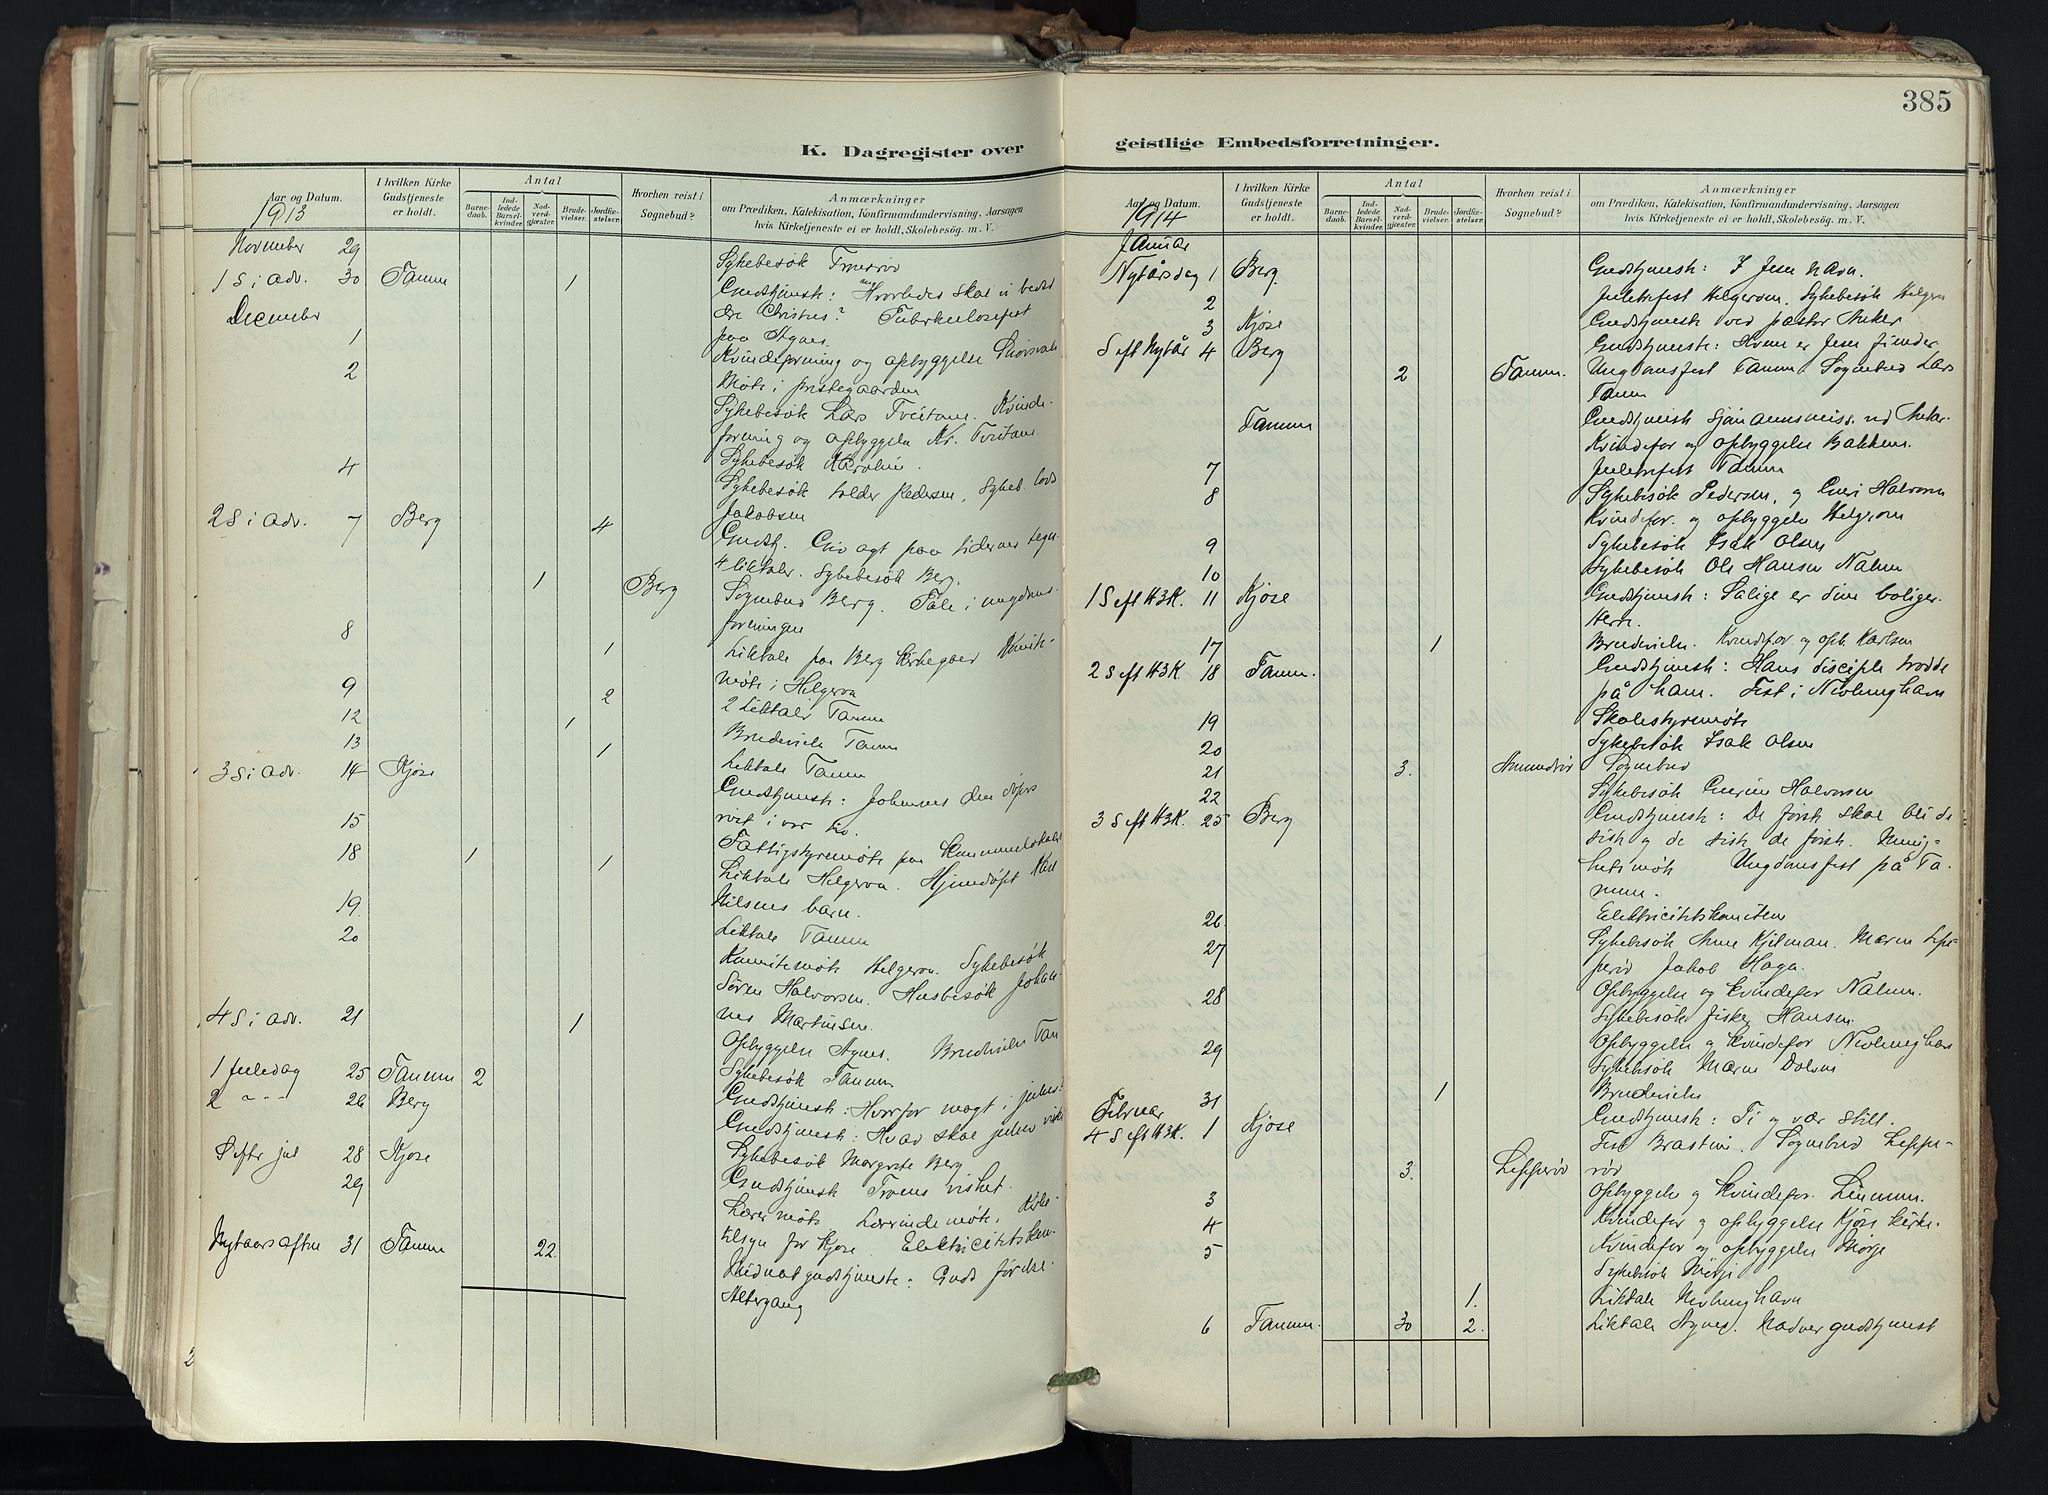 385
K. Dagregister over
geistlige Embedsforretninger.
Aar og Datum. I hvilken Kirke Gudstjeneste er holdt. Antal Barnedaab. Indledede Barselkvinder. Nadverdgjæster. Brudevielser. Jordfæstelser. Hvorhen reist i Sognebud? Anmærkninger
om Prædiken, Katekisation, Konfirmandundervisning, Aarsagen
hvis Kirketjeneste ei er holdt, Skolebesøg. m. V.
1913
November 29 Sykebesök
1 S i adv. 30 Tanum 1 Gudstjeneste: Hvorledes skal vi
December Christus? Tuberkulosefest
1 paa Agnes.
2 Kvindeforening og opbyggelse
Möte i prestegaarden
Sykebesök Lars Tveitane. Kvinde-
forening og opbyggelse Kr. Tveitane
4 Sykebesök Karoline.
Sykebesök Pedersen, Sykeb.
Jakobsen
2 S i adv. 7 Berg 4 Gudstj. Giv agt paa tidernes tegn
4 liktaler. Sykebesök Berg.
1 Berg Sognebud Berg. Tale i ungdoms-
foreningen
8 1 Liktale paa Berg Kirkegaard
möte i Helgeroa
9 2 2 Liktaler Tanum
12 1 Brudevielse Tanum
13 1 Liktale Tanum
3 S i adv. 14 Kjose Gudstjeneste: Johannes den döpers
röst i vor tid.
15 Fattigstyremöte paa Kommunelokalet
18 1 1 Liktale Helgeroa. Hjemdöpt Karl
Nilsens barn.
19 Liktale Tanum
20 Komitemöte Helgeroa. Sykebesök
Sören Halvorsen. Husbesök Johan-
nes Martinsen.
4 S i adv. 21 1 Opbyggelse Agnes. Brudevielse Tan
Sykebesök Tanum
1 Juledag 25 Tanum 2 Gudstjeneste: Hvorfor magt i julen?
2 " 26 Berg Gudstjeneste: Hvad skal julen
Sykebesök Margrete Berg.
S eftr jul 28 Kjose Gudstjeneste Troens vished.
29 Lærermöte Lærerindemöte, Kirke-
tilsyn for Kjose. Elektricitetskom.
Nytaarsaften 31 Tanum 22. Midnatgudstjeneste: Guds
Altergang
Aar og Datum. I hvilken Kirke Gudstjeneste er holdt. Antal Barnedaab. Indledede Barselkvinder. Nadverdgjæster. Brudevielser. Jordfæstelser. Hvorhen reist i Sognebud? Anmærkninger
om Prædiken, Katekisation, Konfirmandundervisning, Aarsagen
hvis Kirketjeneste ei er holdt, Skolebesög. m. V.
1914
Januar
Nytårsdag 1 Berg Gudstjeneste: I Jesu navn.
2 Juletrefest Helgeroa. Sykebesök Helgeroa
3 Kjose Gudstjeneste ved pastor Anker
S eft Nytår 4 Berg Gudstjeneste: Hvem er Jesu fiender
2 Tanum. Ungdomsfest Tanum Sognebud Lars
Tanum
Tanum Gudstjeneste Sjömannsmiss. ved Anker.
Kvindefor og opbyggelse Bakken.
7 Juletrefest Tanum
8 Sykebesök Pedersen, og Guri Halvorsen
Kvindefor. og opbyggelse Helgeroa
9 Sykebesök Isak Olsen
10 Sykebesök Ole Hansen Nalum
1 S eft H3K. 11 Kjose Gudstjeneste: Salige er dine boliger.
Herre.
17 1 Brudevielse. Kvindefor og opb. Karlsen
2 S eft H3K 18 Tanum. Gudstjeneste: Hans disciple trodde
på ham. Fest i Nevlunghavn
19 Skolestyremöte
20 Sykebesök Isak Olsen
21 3. Amundröd Sognebud
22 Sykebesök Gurine Halvorsen
3 S eft H3K. 25 Berg Gudstjeneste: De förste skal bli de
siste og de siste de förste. Menig-
hetsmöte Ungdomsfest på Ta-
num.
26 Elektricitetskomiteen
27 Sykebesök Anne Kjelman. Maren Lepp-
eröd Jakob Haga.
28 Opbyggelse og Kvindefor Nalum.
Sykebesök fisker Hansen.
29 Opbyggelse og Kvindefor Nevlunghavn
Sykebesök Maren Dolven
31 1 Brudevielse
Februar
4 S eft H3K. 1 Kjose Gudstjeneste: Ti og vær stille.
3. Leperöd Fest Brastein. Sognebud Leppe-
röd
3 Opbyggelse og Kvindefor. Linnum.
4 Kvindefor og opbyggelse Kjose Kirke.
5 Kvindefor og opbyggelse Mörje
Sykebesök Mörje
1. Liktale Nevlunghavn
6 Tanum. 30 2. Liktale Agnes. Nadvergudstjenest